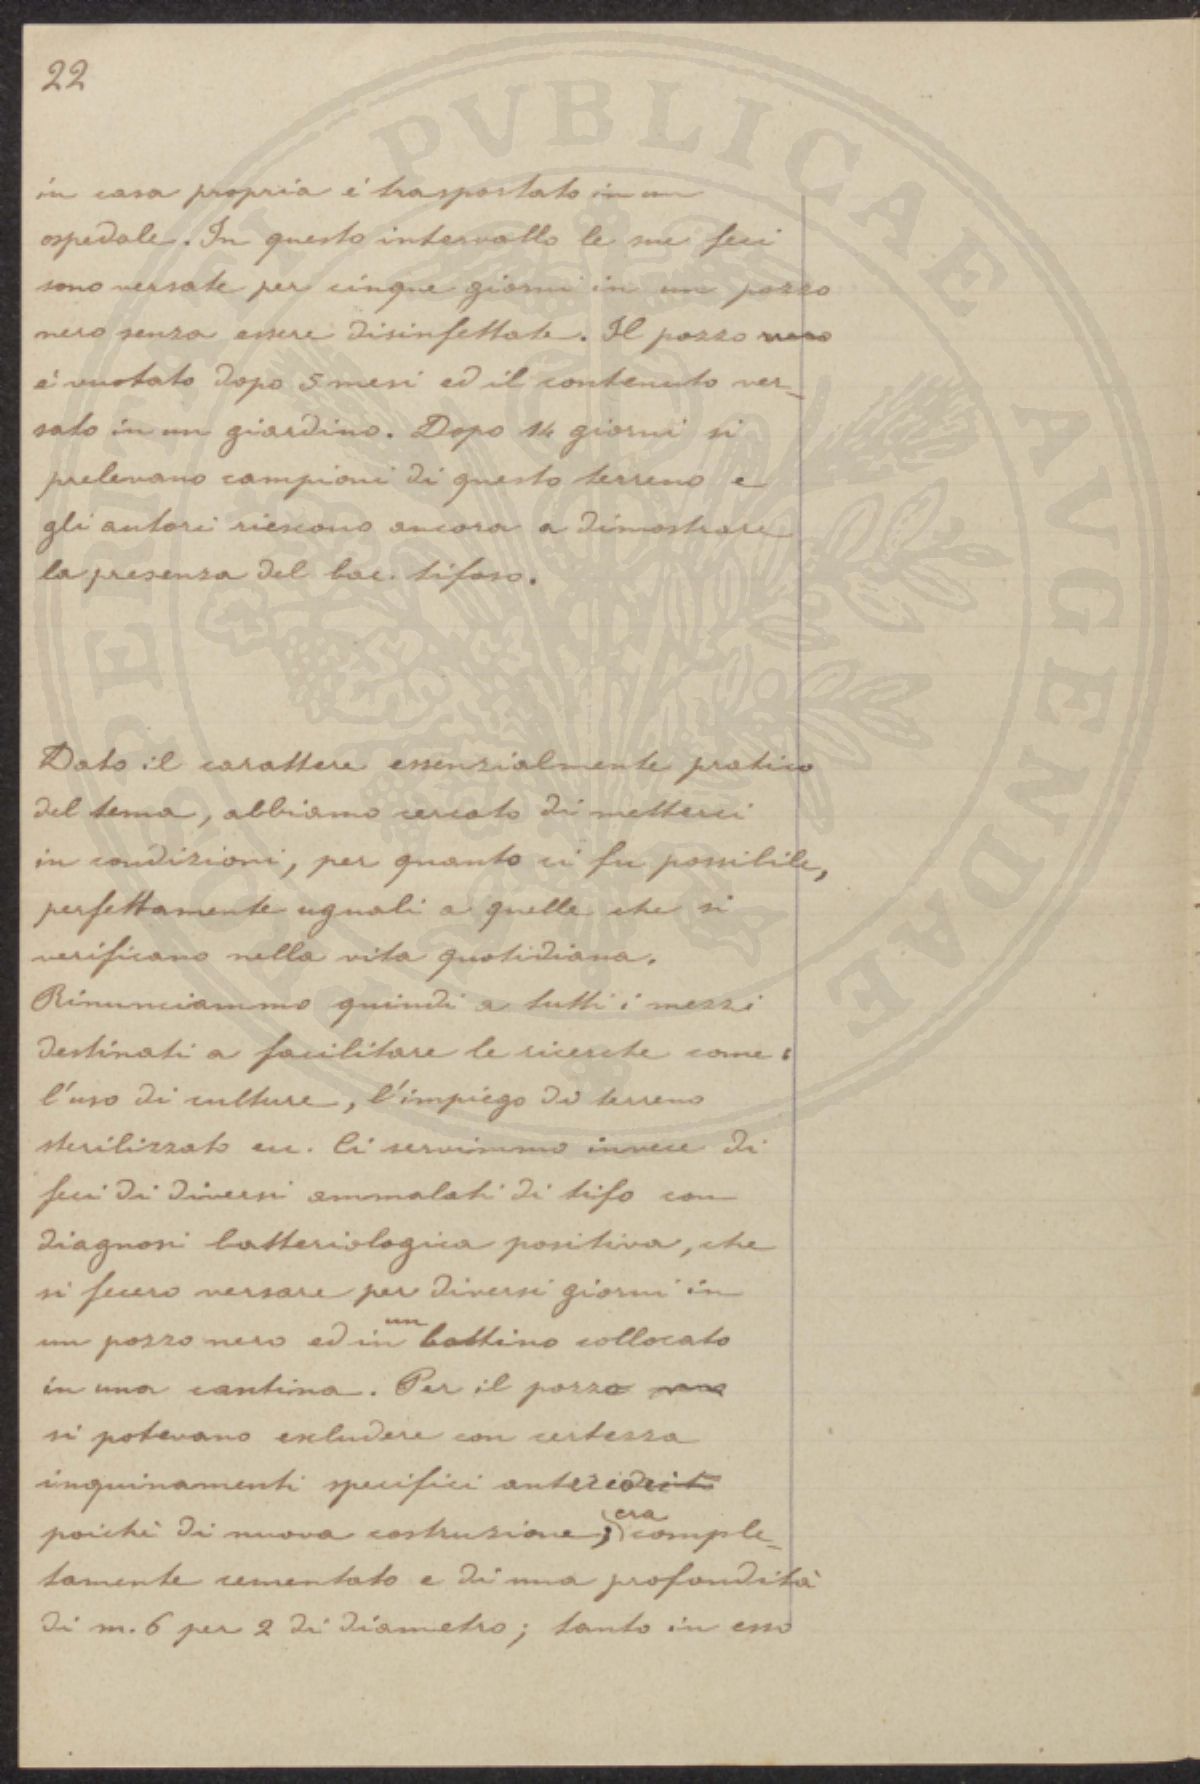 22
in casa propria é trasportato in un
ospedale. In questo intervallo le sue feci
sono versate per cinque giorni in un pozzo
nero senza essere disinfettate. Il pozzo nero
é vuotato dopo 5 mesi ed il contenuto ver-
sato in un giardino. Dopo 14 giorni si
prelevano campioni di questo terreno e
gli autori riescono ancora a dimostrare
la presenza del bac. tifoso.
Dato il carattere essenzialmente pratico
del tema, abbiamo cercato di metterci
in condizioni, per quanto ci fu possibile,
perfettamente uguali a quelle che si
verificano nella vita quotidiana.
Rinunciammo quindi a tutti i mezzi
destinati a facilitare le ricerche come:
l'uso di culture, l'impiego di terreno
sterilizzato ecc. Ci servimmo invece di
feci di diversi ammalati di tifo con
diagnosi batteriologica positiva, che
si fecero versare per diversi giorni in
un pozzo nero ed in un bottino collocato
in una cantina. Per il pozzo nero
si potevano escludere con certezza
inquinamenti specifici
poiché di nuova costruzione; era comple-
tamente cementato e di una profondità
di m. 6 per 2 di diametro; tanto in esso
PUBLICAE AUGENDAE